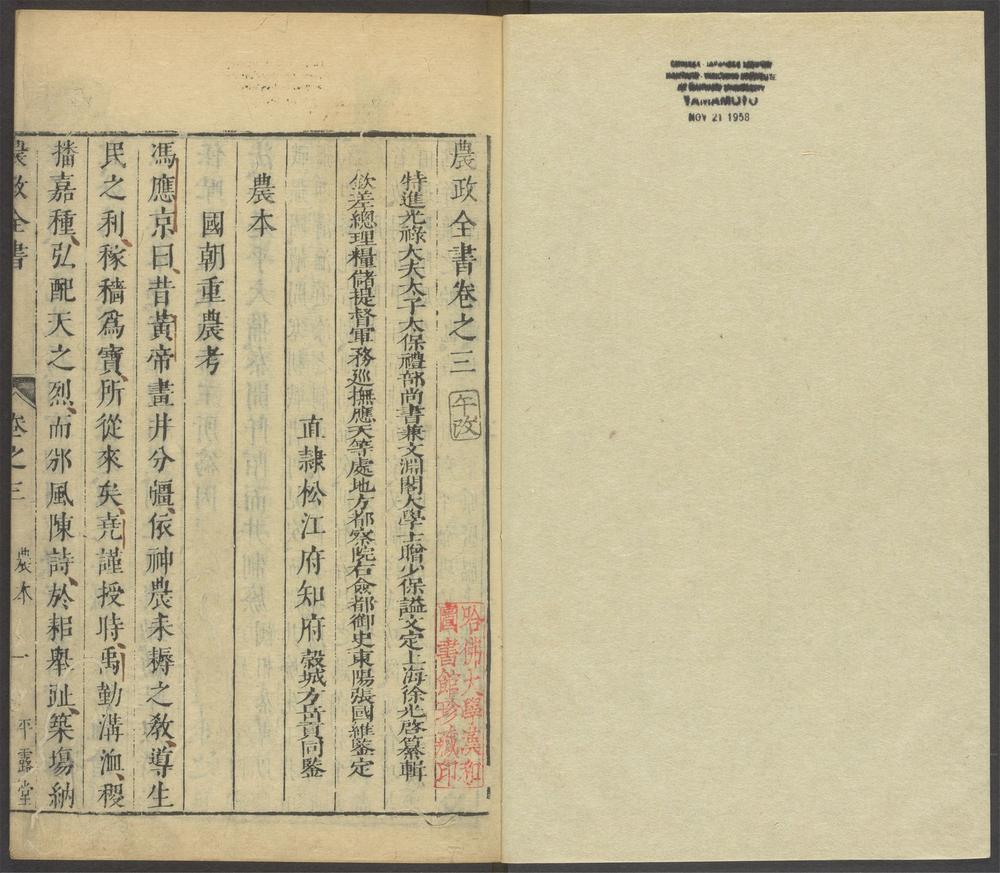 YAMAMOTO
NOV 21 1958
農政全書卷之三
午改
特進光祿大夫太子太保禮部尚書兼文淵閣大學士贈少保謚文定上海徐光啓纂輯
欽差總理糧儲提督軍務巡撫應天等處地方都察院右僉都御史東陽張國維鑒定
直隷松江府知府穀城方岳貢同鑒
農本
國朝重農考
馮應京曰、昔黃帝畫井分疆、依神農耒耨之教、導生
民之利、稼穡爲寶、所從來矣、堯謹授時、禹勤溝洫、稷
播嘉種、弘配天之烈、而邠風陳詩、於耜舉趾、築塲納
農政全書
卷之三
農本
一
平露堂
哈佛大學漢和
圖書館珍藏印